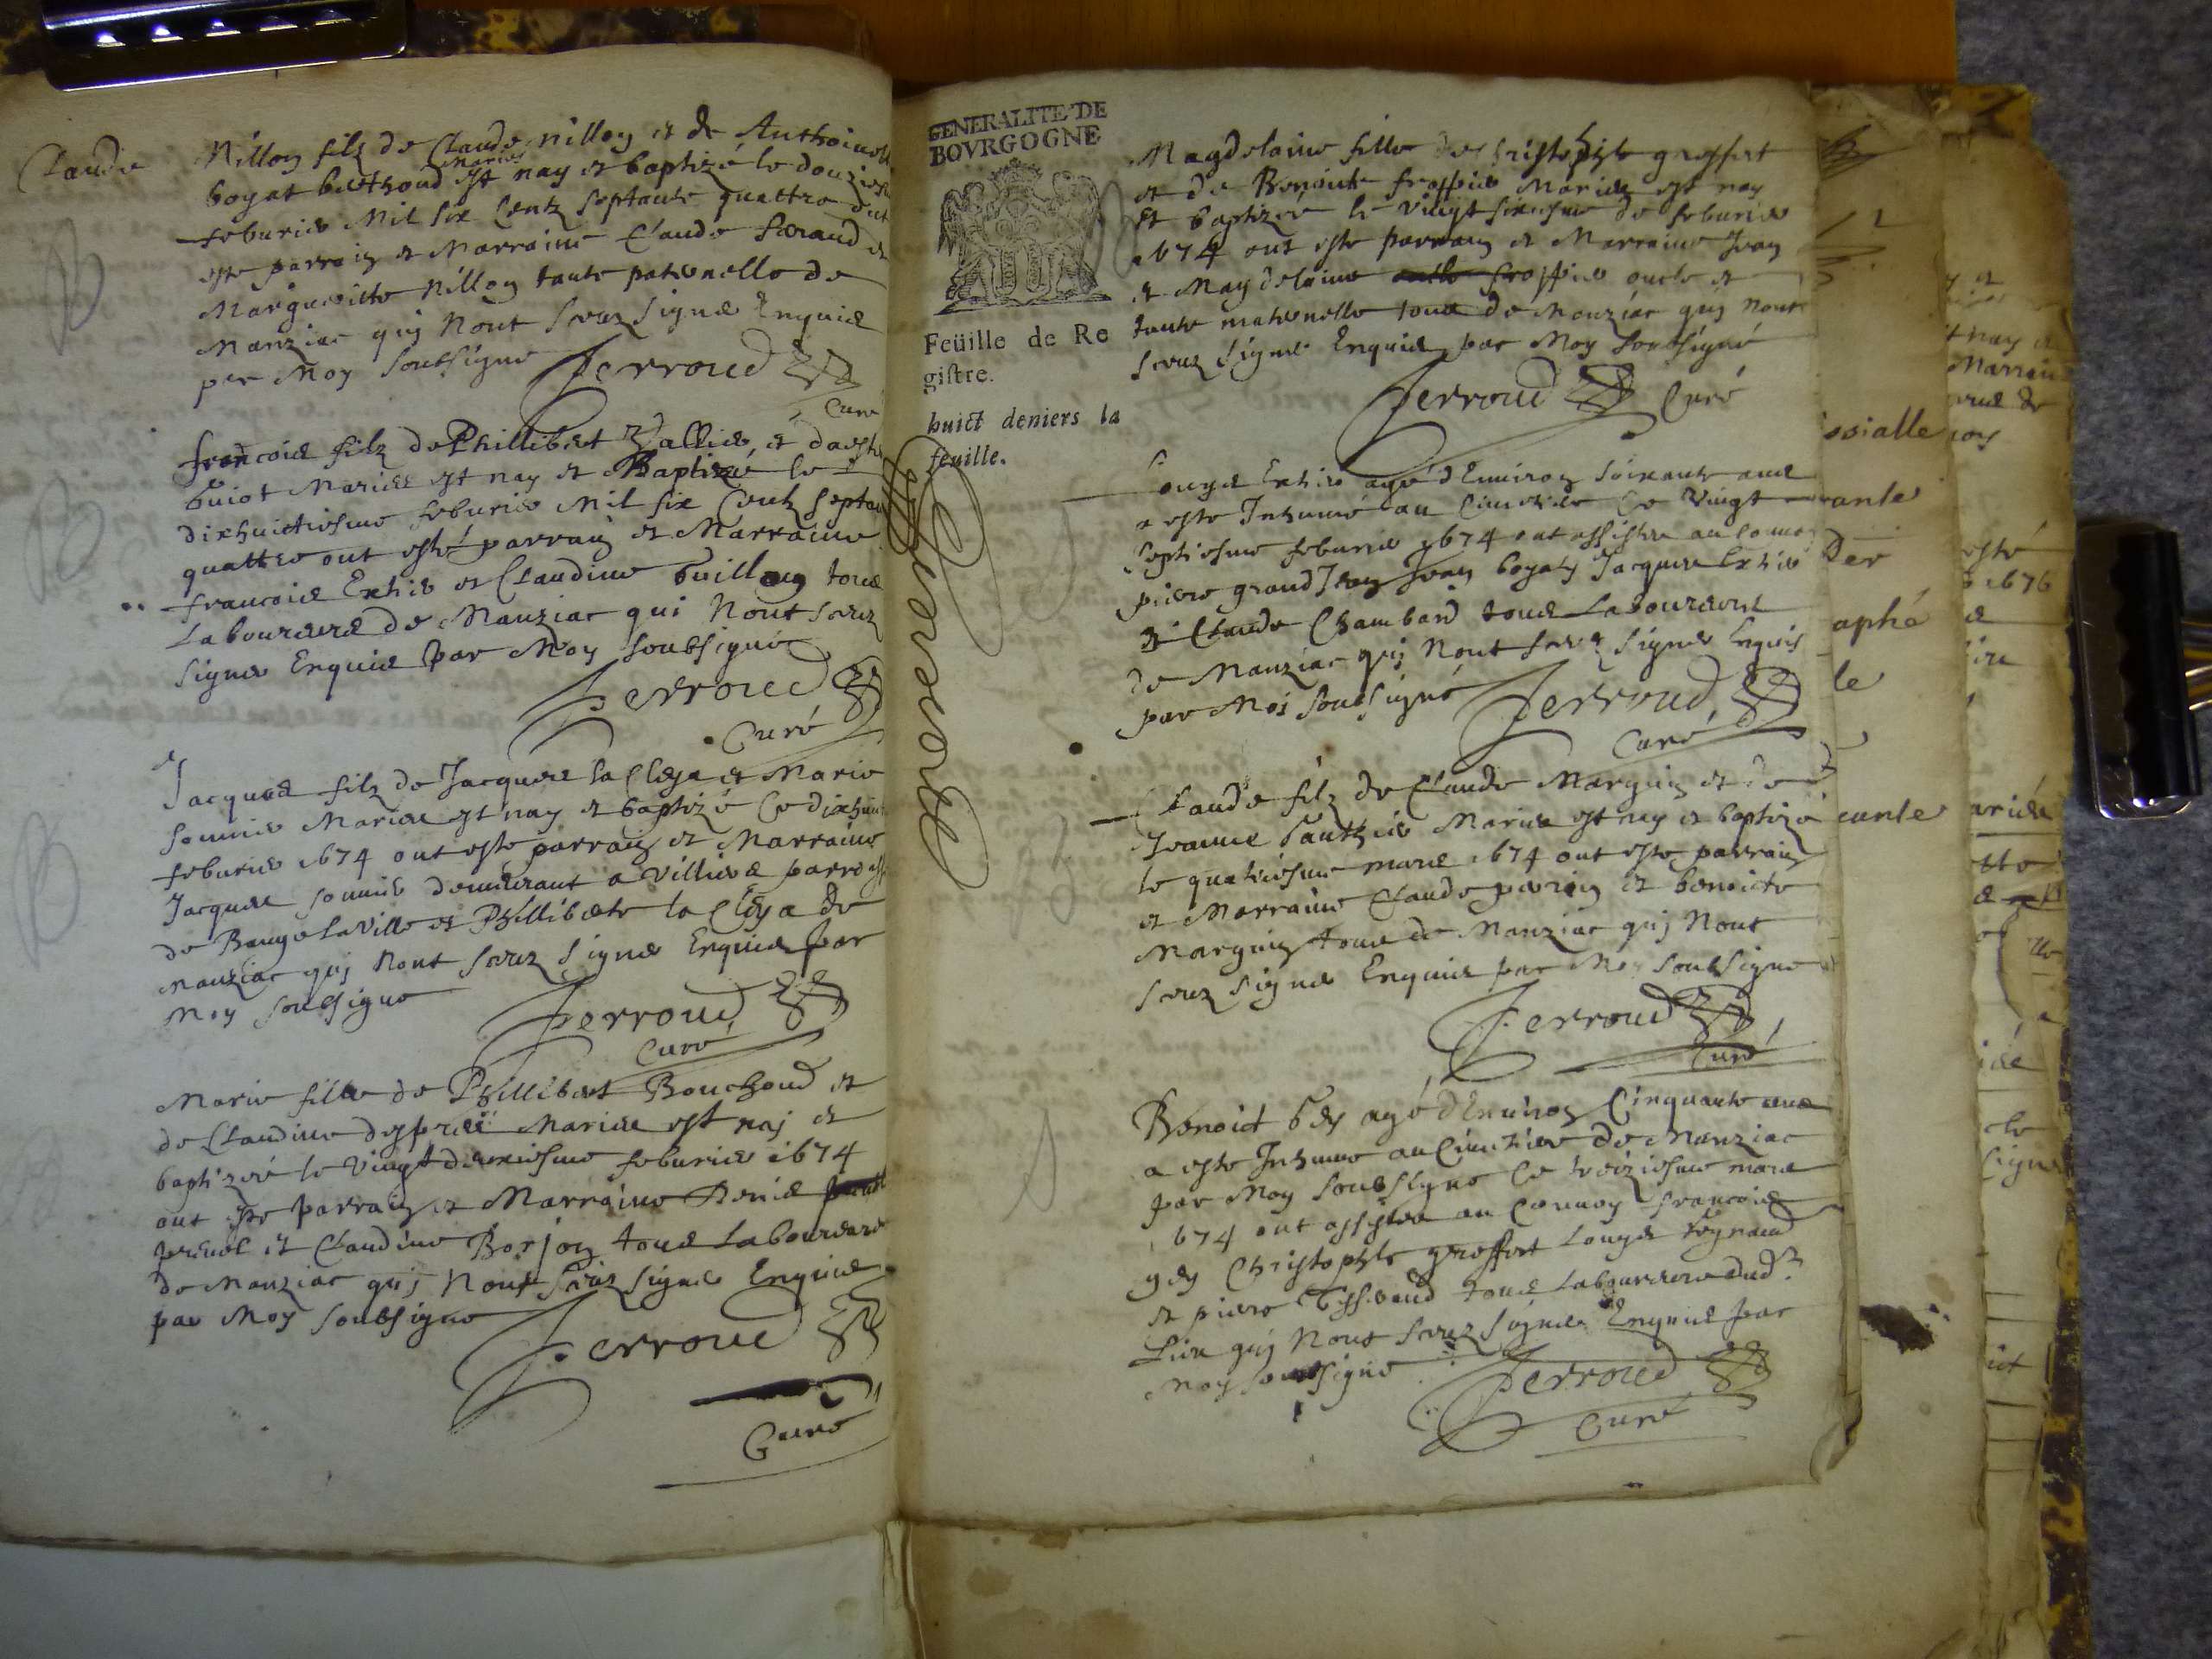 Claude Nillon filz de Claude nillon et de Anthoine
boyat berthoud Mariés est nay et baptizé le douzies
feburier Mil six Centz septante quattre ont
este parrain et Marraine Claude feraud et
Margueritte Nillon tante paternelle de
Manziac quj Nont sceuz signer Enquis
per Moy soubsigne Ferroud
Curé
francois filz de Phillibert Vallier et
buiot Mariés est nay et Baptizé le
dixhuictiesme feburier Mil six Centz septan
quattre ont esté parrain et Marraine
francois Exhie et Claudine Guillon tous
Laboureurs de Manziac qui Nont sceuz
signer Enquis par Moy soubsigné
Ferroud
Curé
Jacques filz de Jacques la Cleya et Marie
sonnie Maries est nay et baptizé Ce dixhuit
feburier 1674 ont este parrain et Marraine
Jacques sonnie demeurant a Villiers parro
de Bauge la Ville et Phillibete la Cleya de
Manziac quj Nont sceuz signer Enquis par
Moy soubsigne Ferroud
Curé
Marie fille de Phillibert Bouchoud et
de Claudine desprès Maries est naj et
baptizeé le Vingtdeuxiesme feburier 1674
ont este parrain et Marraine Denis
et Claudine Borjon tous Laboureurs
de Manziac quj Nont sceuz signer Enquis
par Moy soubsigne Ferroud
Curé
GENERALITE DE
BOVRGOGNE
Feüille de Re
giſtre.
huict deniers la
feuille.
Magdelaine fille de christophle greffet
et de Benoiste froppier Maries est nay
Et baptizeé le Vingt sixiesme de feburier
1674 ont este parrain et Marraine Jean
et Magdelaine froppier oncle et
tante maternelle tous de Manziac quj Nont
sceuz signer Enquis par Moy soubsigné
Ferroud Curé
Louys Exhie agé dEnuiron soixante ans
a este Inhumé au Cimetiere Ce Vingt
septiesme feburier 1674 ont assistez au
piere grand Jean Jean boyat Jacques Exhie
et Claude Chambard tous Laboureurs
de Manziac quj Nont sceuz signer Enquis
par Moi soubsigné Ferroud
Curé
Claude filz de Claude Marguin et de
Jeanne Pauthier Maries est nay et baptizé
le quatriesme mars 1674 ont este parrain
et Marraine Claude perrin et benoiste
Marguin tous de Manziac quj Nont
sceuz signer Enquis par Moy soubsigne
Ferroud
Curé
Benoict Gey agé dEnuiron Cinquante ans
a este Inhumé au Cimetiere de Manziac
par Moy soubsigne Ce treiziesme mars
1674 ont assistez au Conuoy francois
gey Christophle greffet Louys
et piere tous Laboureurs dud
Lieu quj Nont sceuz signer Enquis par
Moy soubsigné Ferroud
Curé